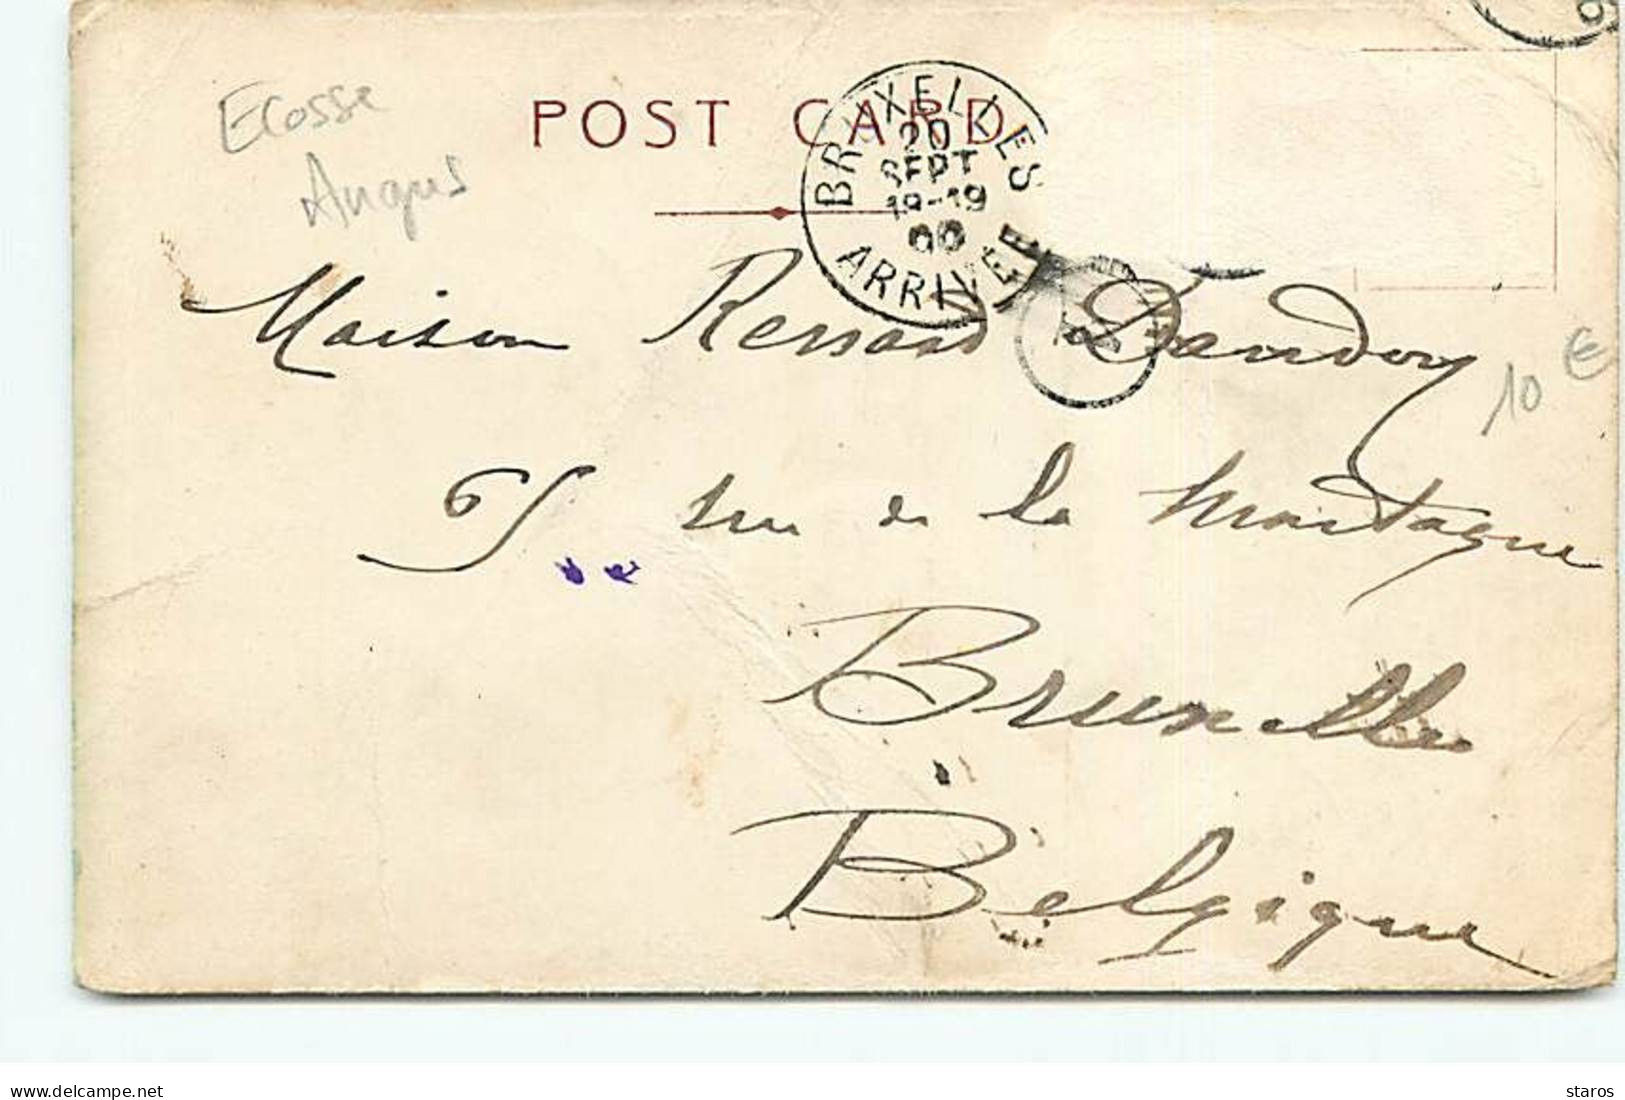 Ecosse
Angus
POST CARD
BRUXELLES
20
SEPT
18-19
ARRIVEE
Maison Dandoy
10 €
rue de la Montagne
Bruxelles
Belgique
delcampe.net
staros